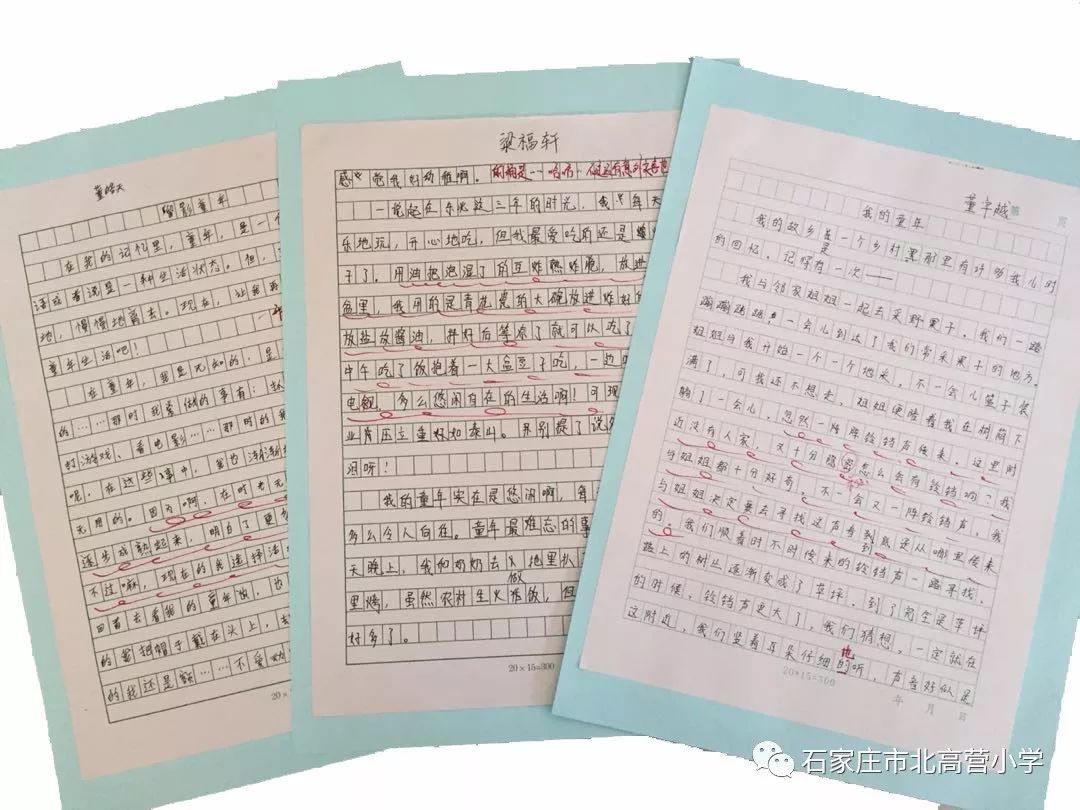 董皓天
留影童年
在我的记忆里，童年，是一个
话或者说是一种生活状态。但，
地，慢慢地离去。现在，让我再
童年生活吧！
在童年，我是无知的，是
的……那时我爱做的事有：
打游戏、看电影……那时的我
呢，在这些事中，
无用的。因为啊，在时光
逐步成熟起来，明白了更多
不过嘛，现在的我选择活
回首去看我的童年故，也
的金把帽子戴在头上，
的我还是额……不爱
梁福轩
感觉我好幼稚啊。的确是……哈哈……
一说起在东北这三年的时光，我只每天
乐地玩，开心地吃，但我最爱吃的还是
子了。用油把泡湿了的豆炸熟炸脆，放进
盆里，我用的是青花瓷的大碗放进炸好的
放盐放酱油，拌好后等凉了就可以吃了
中午吃了饭抱着一大盆豆子吃，一边
电视，多么悠闲自在的生活啊！可现
业片压立重好如泰山。来别提了说多
泪呀！
我的童年实在是悠闲啊，每
多么令人向往。童年最难忘的事
天晚上，我和奶奶去地里扒
里烤，虽然农村生火做饭，但
好多了。
20×15=300
董宇越
我的童年
我的故乡是一个乡村里那里有许多我儿时
的回忆。记得有一次——
我与邻家姐姐一起去采野果子。我们一路
蹦蹦跳跳，一会儿到达了我们常采果子的地方。
姐姐与我开始一个一个地采，不一会儿篮子装
满了，可我还不想走，姐姐便陪着我在树荫下
躺了一会儿，忽然一阵阵铃铛声传来，这里附
近没有人家，又十分隐密怎么会有铃铛响？我
与姐姐都十分好奇。不一会又一阵铃铛声，我
与姐姐决定要去寻找这声音到底是从哪里传来
的。我们顺着时不时传来的铃铛声一路寻找，
路上的树丛逐渐变成了草坪，到了前生是草坪
的时候，铃铛声更大了，我们猜想，一定就在
这附近，我们竖着耳朵仔细的听，声音好似是
地
20×15=300
年 月 日
石家庄市北高营小学